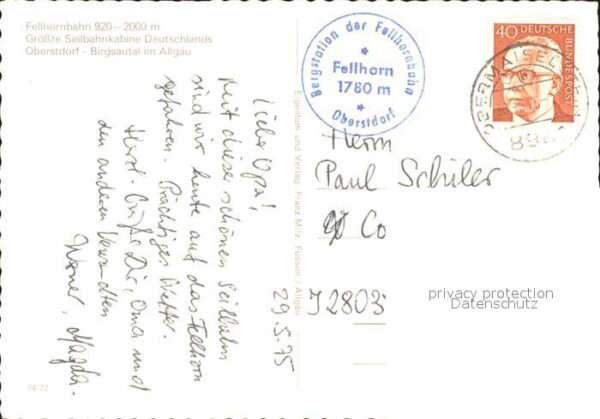 Fellhornbahn 920–2000 m
Größte Seilbahnkabine Deutschlands
Oberstdorf - Birgsautal im Allgäu
Bergstation der Fellhornbahn
Fellhorn
1780 m
Oberstdorf
40 DEUTSCHE
BUNDESPOST
OBERMAISELSTEIN
Liebe Opa!
Mit dieser schönen Seilbahn
sind wir heute auf das Fellhorn
gefahren. Prächtiges Wetter.
Herzl. Grüße Dir, Oma und
den anderen Verwandten
Werner, Magda.
29.5.75
Eigentum und Verlag Franz Milz, Füssen / Allgäu
Herrn
Paul Schüler
Co
J2803
privacy protection
Datenschutz
74/72